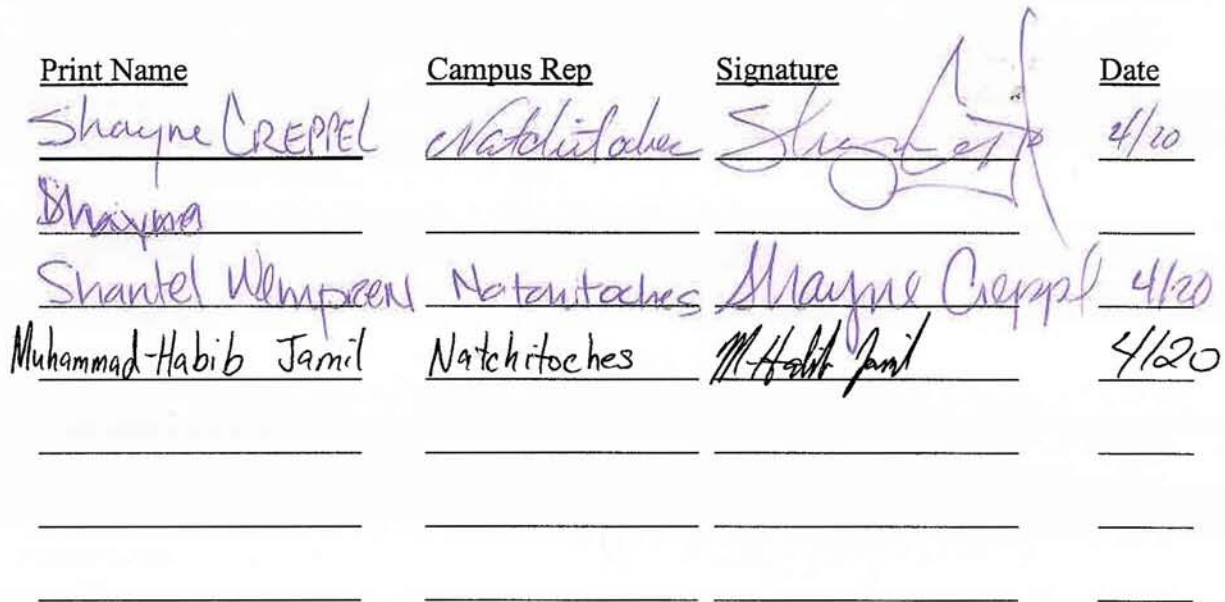 Print Name Campus Rep Signature Date
Shayne CREPPEL Natchitoches 4/20
Shantel Natchitoches Shayne Creppel 4/20
Muhammad-Habib Jamil Natchitoches M-Habib Jamil 4/20